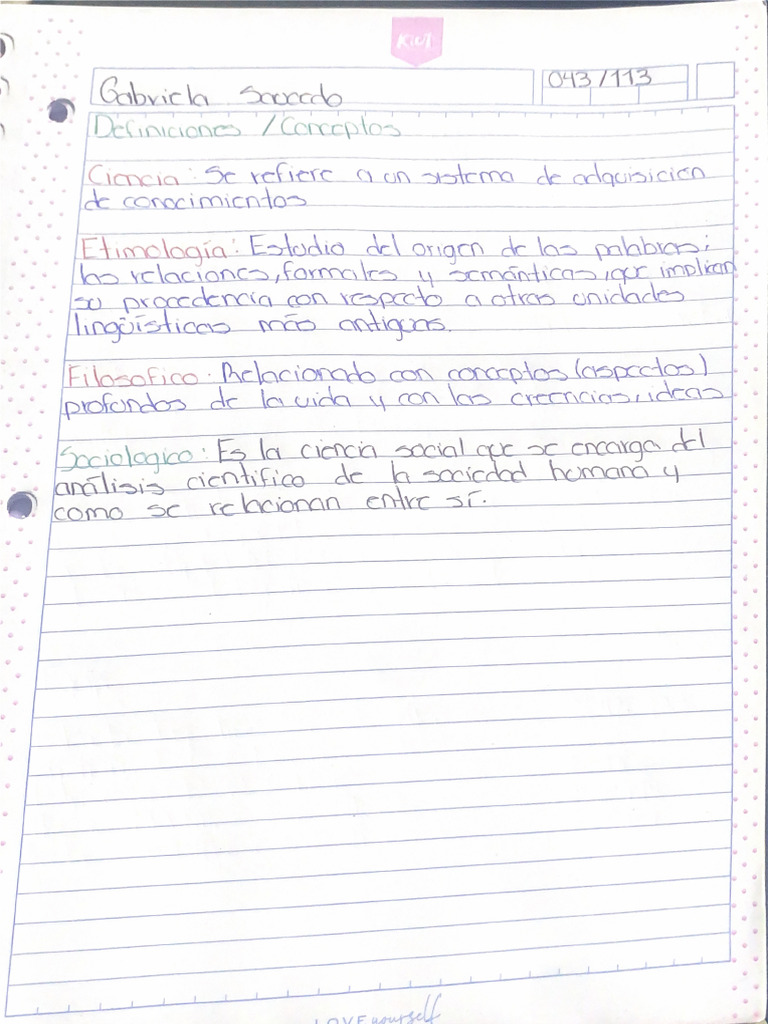 KIUT
Gabriela Saucedo
043/113
Definiciones / Conceptos
Ciencia: Se refiere a un sistema de adquisicion
de conocimientos
Etimología: Estudio del origen de las palabras;
las relaciones, formales y semánticas, que implican
su procedencia con respecto a otras unidades
lingüísticas más antiguas.
Filosofico: Relacionado con conceptos (aspectos)
profundos de la vida y con las creencias, ideas
Sociologico: Es la ciencia social que se encarga del
análisis cientifico de la sociedad humana y
como se relacionan entre sí.
LOVE yourself